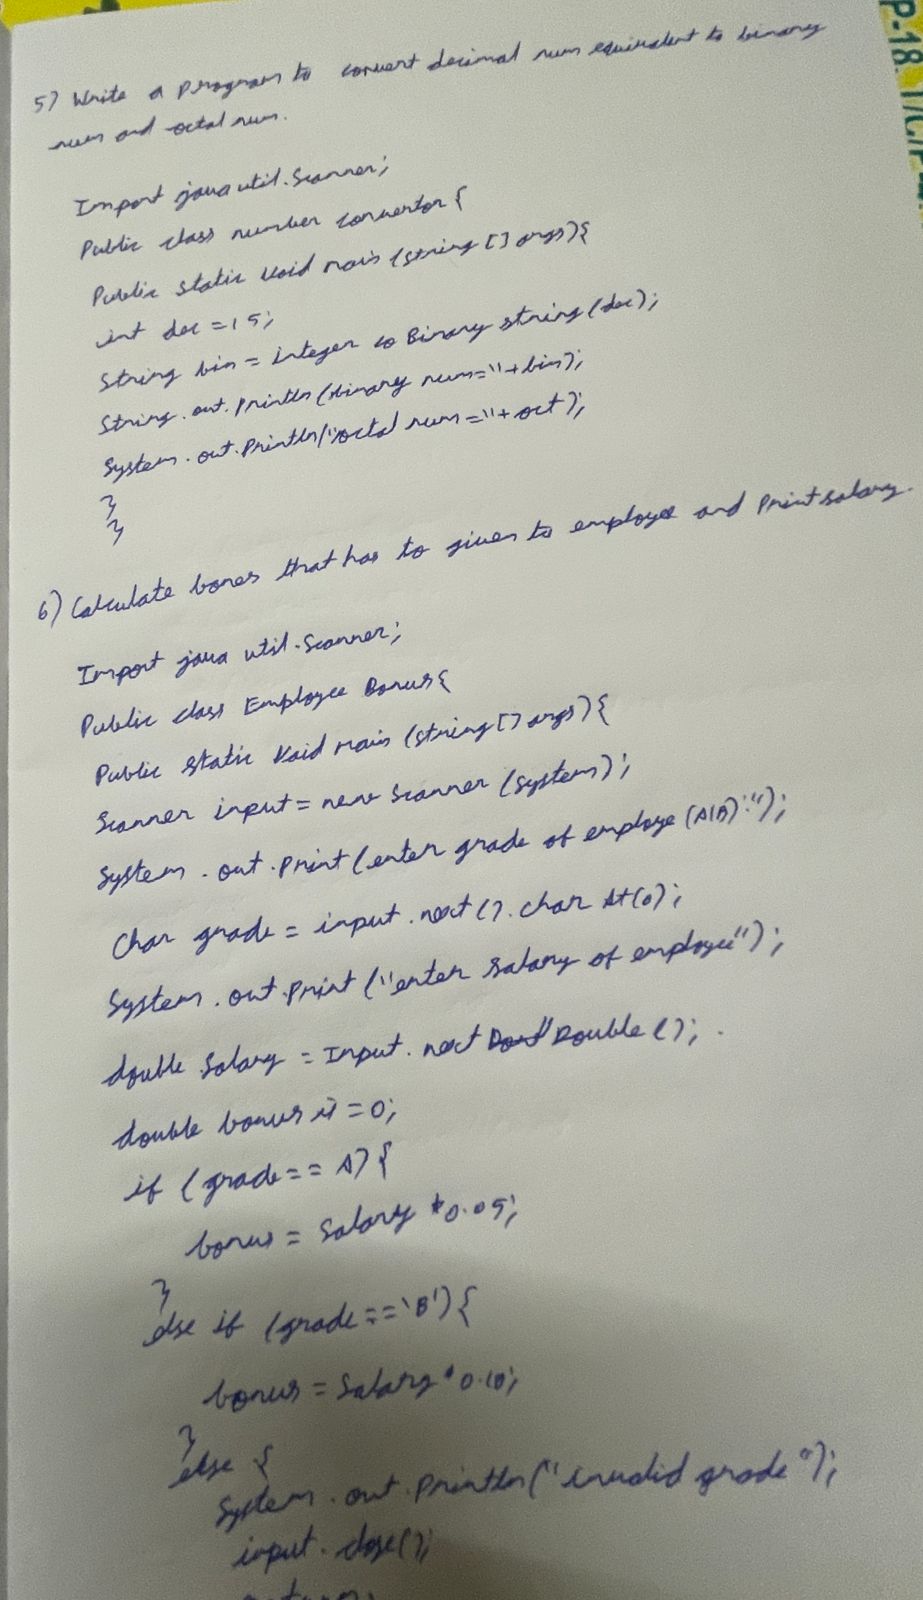 P-18 T/C/F
5) Write a program to convert decimal num equivalent to binary
num and octal num.
Import java util.Scanner;
Public class number convertor {
Public static Void main (string [] args) {
int dec = 15;
String bin = Integer to Binary string (dec);
String.out.println (binary num="+bin);
System.out.Println("octal num="+oct);
}
}
6) Calculate bones that has to given to employee and Print salary.
Import java util.Scanner;
Public class Employee Bonus {
Public static Void main (string [] args) {
Scanner input = new Scanner (System);
System.out.print (enter grade of employe (A/B):");
Char grade = input.next().char At(0);
System.out.print ("enter salary of employee");
double Salary = Input.next Double ();
double bonus = 0;
if (grade == A) {
bonus = Salary * 0.05;
}
else if (grade == 'B') {
bonus = Salary * 0.10;
}
else {
System.out.println("invalid grade");
input.close();